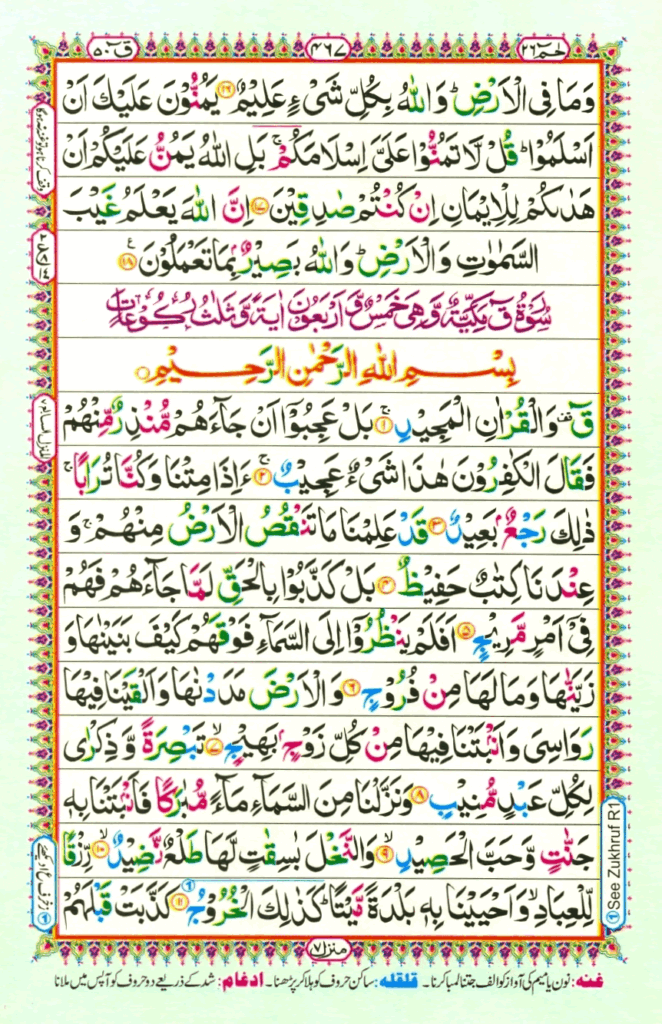 حٰمٓ ۲۶
۴۶۷
قٓ ۵۰
وَمَا فِی الْاَرْضِ ؕ وَاللّٰهُ بِكُلِّ شَیْءٍ عَلِیْمٌ ﴿۱۶﴾ یَمُنُّوْنَ عَلَیْكَ اَنْ
اَسْلَمُوْا ؕ قُلْ لَّا تَمُنُّوْا عَلَیَّ اِسْلَامَكُمْ ۚ بَلِ اللّٰهُ یَمُنُّ عَلَیْكُمْ اَنْ
هَدٰىكُمْ لِلْاِیْمَانِ اِنْ كُنْتُمْ صٰدِقِیْنَ ﴿۱۷﴾ اِنَّ اللّٰهَ یَعْلَمُ غَیْبَ
السَّمٰوٰتِ وَالْاَرْضِ ؕ وَاللّٰهُ بَصِیْرٌۢ بِمَا تَعْمَلُوْنَ ﴿۱۸﴾
سُوْرَةُ قٓ مَكِّیَّةٌ وَّهِیَ خَمْسٌ وَّاَرْبَعُوْنَ اٰیَةً وَّثَلٰثُ رُكُوْعَاتٍ
بِسْمِ اللّٰهِ الرَّحْمٰنِ الرَّحِیْمِ
قٓ ۚ وَالْقُرْاٰنِ الْمَجِیْدِ ﴿۱﴾ بَلْ عَجِبُوْۤا اَنْ جَآءَهُمْ مُّنْذِرٌ مِّنْهُمْ
فَقَالَ الْكٰفِرُوْنَ هٰذَا شَیْءٌ عَجِیْبٌ ﴿۲﴾ ءَاِذَا مِتْنَا وَكُنَّا تُرَابًا ۚ
ذٰلِكَ رَجْعٌۢ بَعِیْدٌ ﴿۳﴾ قَدْ عَلِمْنَا مَا تَنْقُصُ الْاَرْضُ مِنْهُمْ ۚ وَ
عِنْدَنَا كِتٰبٌ حَفِیْظٌ ﴿۴﴾ بَلْ كَذَّبُوْا بِالْحَقِّ لَمَّا جَآءَهُمْ فَهُمْ
فِیْۤ اَمْرٍ مَّرِیْجٍ ﴿۵﴾ اَفَلَمْ یَنْظُرُوْۤا اِلَی السَّمَآءِ فَوْقَهُمْ كَیْفَ بَنَیْنٰهَا وَ
زَیَّنّٰهَا وَمَا لَهَا مِنْ فُرُوْجٍ ﴿۶﴾ وَالْاَرْضَ مَدَدْنٰهَا وَاَلْقَیْنَا فِیْهَا
رَوَاسِیَ وَاَنْۢبَتْنَا فِیْهَا مِنْ كُلِّ زَوْجٍۭ بَهِیْجٍ ۙ﴿۷﴾ تَبْصِرَةً وَّذِكْرٰی
لِكُلِّ عَبْدٍ مُّنِیْبٍ ﴿۸﴾ وَنَزَّلْنَا مِنَ السَّمَآءِ مَآءً مُّبٰرَكًا فَاَنْۢبَتْنَا بِهٖ
جَنّٰتٍ وَّحَبَّ الْحَصِیْدِ ۙ﴿۹﴾ وَالنَّخْلَ بٰسِقٰتٍ لَّهَا طَلْعٌ نَّضِیْدٌ ۙ﴿۱۰﴾ رِّزْقًا
لِّلْعِبَادِ ۙ وَاَحْیَیْنَا بِهٖ بَلْدَةً مَّیْتًا ؕ كَذٰلِكَ الْخُرُوْجُ ﴿۱۱﴾ كَذَّبَتْ قَبْلَهُمْ
① See Zukhruf R1
منزل ۷
غنه: نون یا میم کی آواز کو الف جتنا لمبا کرنا۔ قلقله: ساکن حروف کو ہلا کر پڑھنا۔ ادغام: شد کے ذریعے دو حروف کو آپس میں ملانا